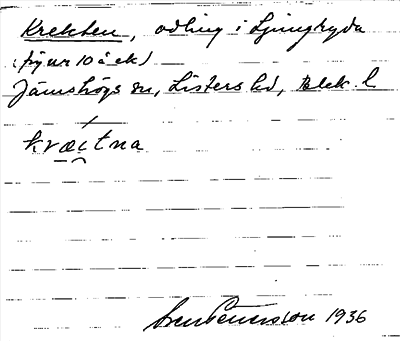 Krekten, odling i Ljungryda
(fyur 10 åek)
Jämshögs sn, Listers hd, Blek. l
kræitna
Sven Benersson 1936